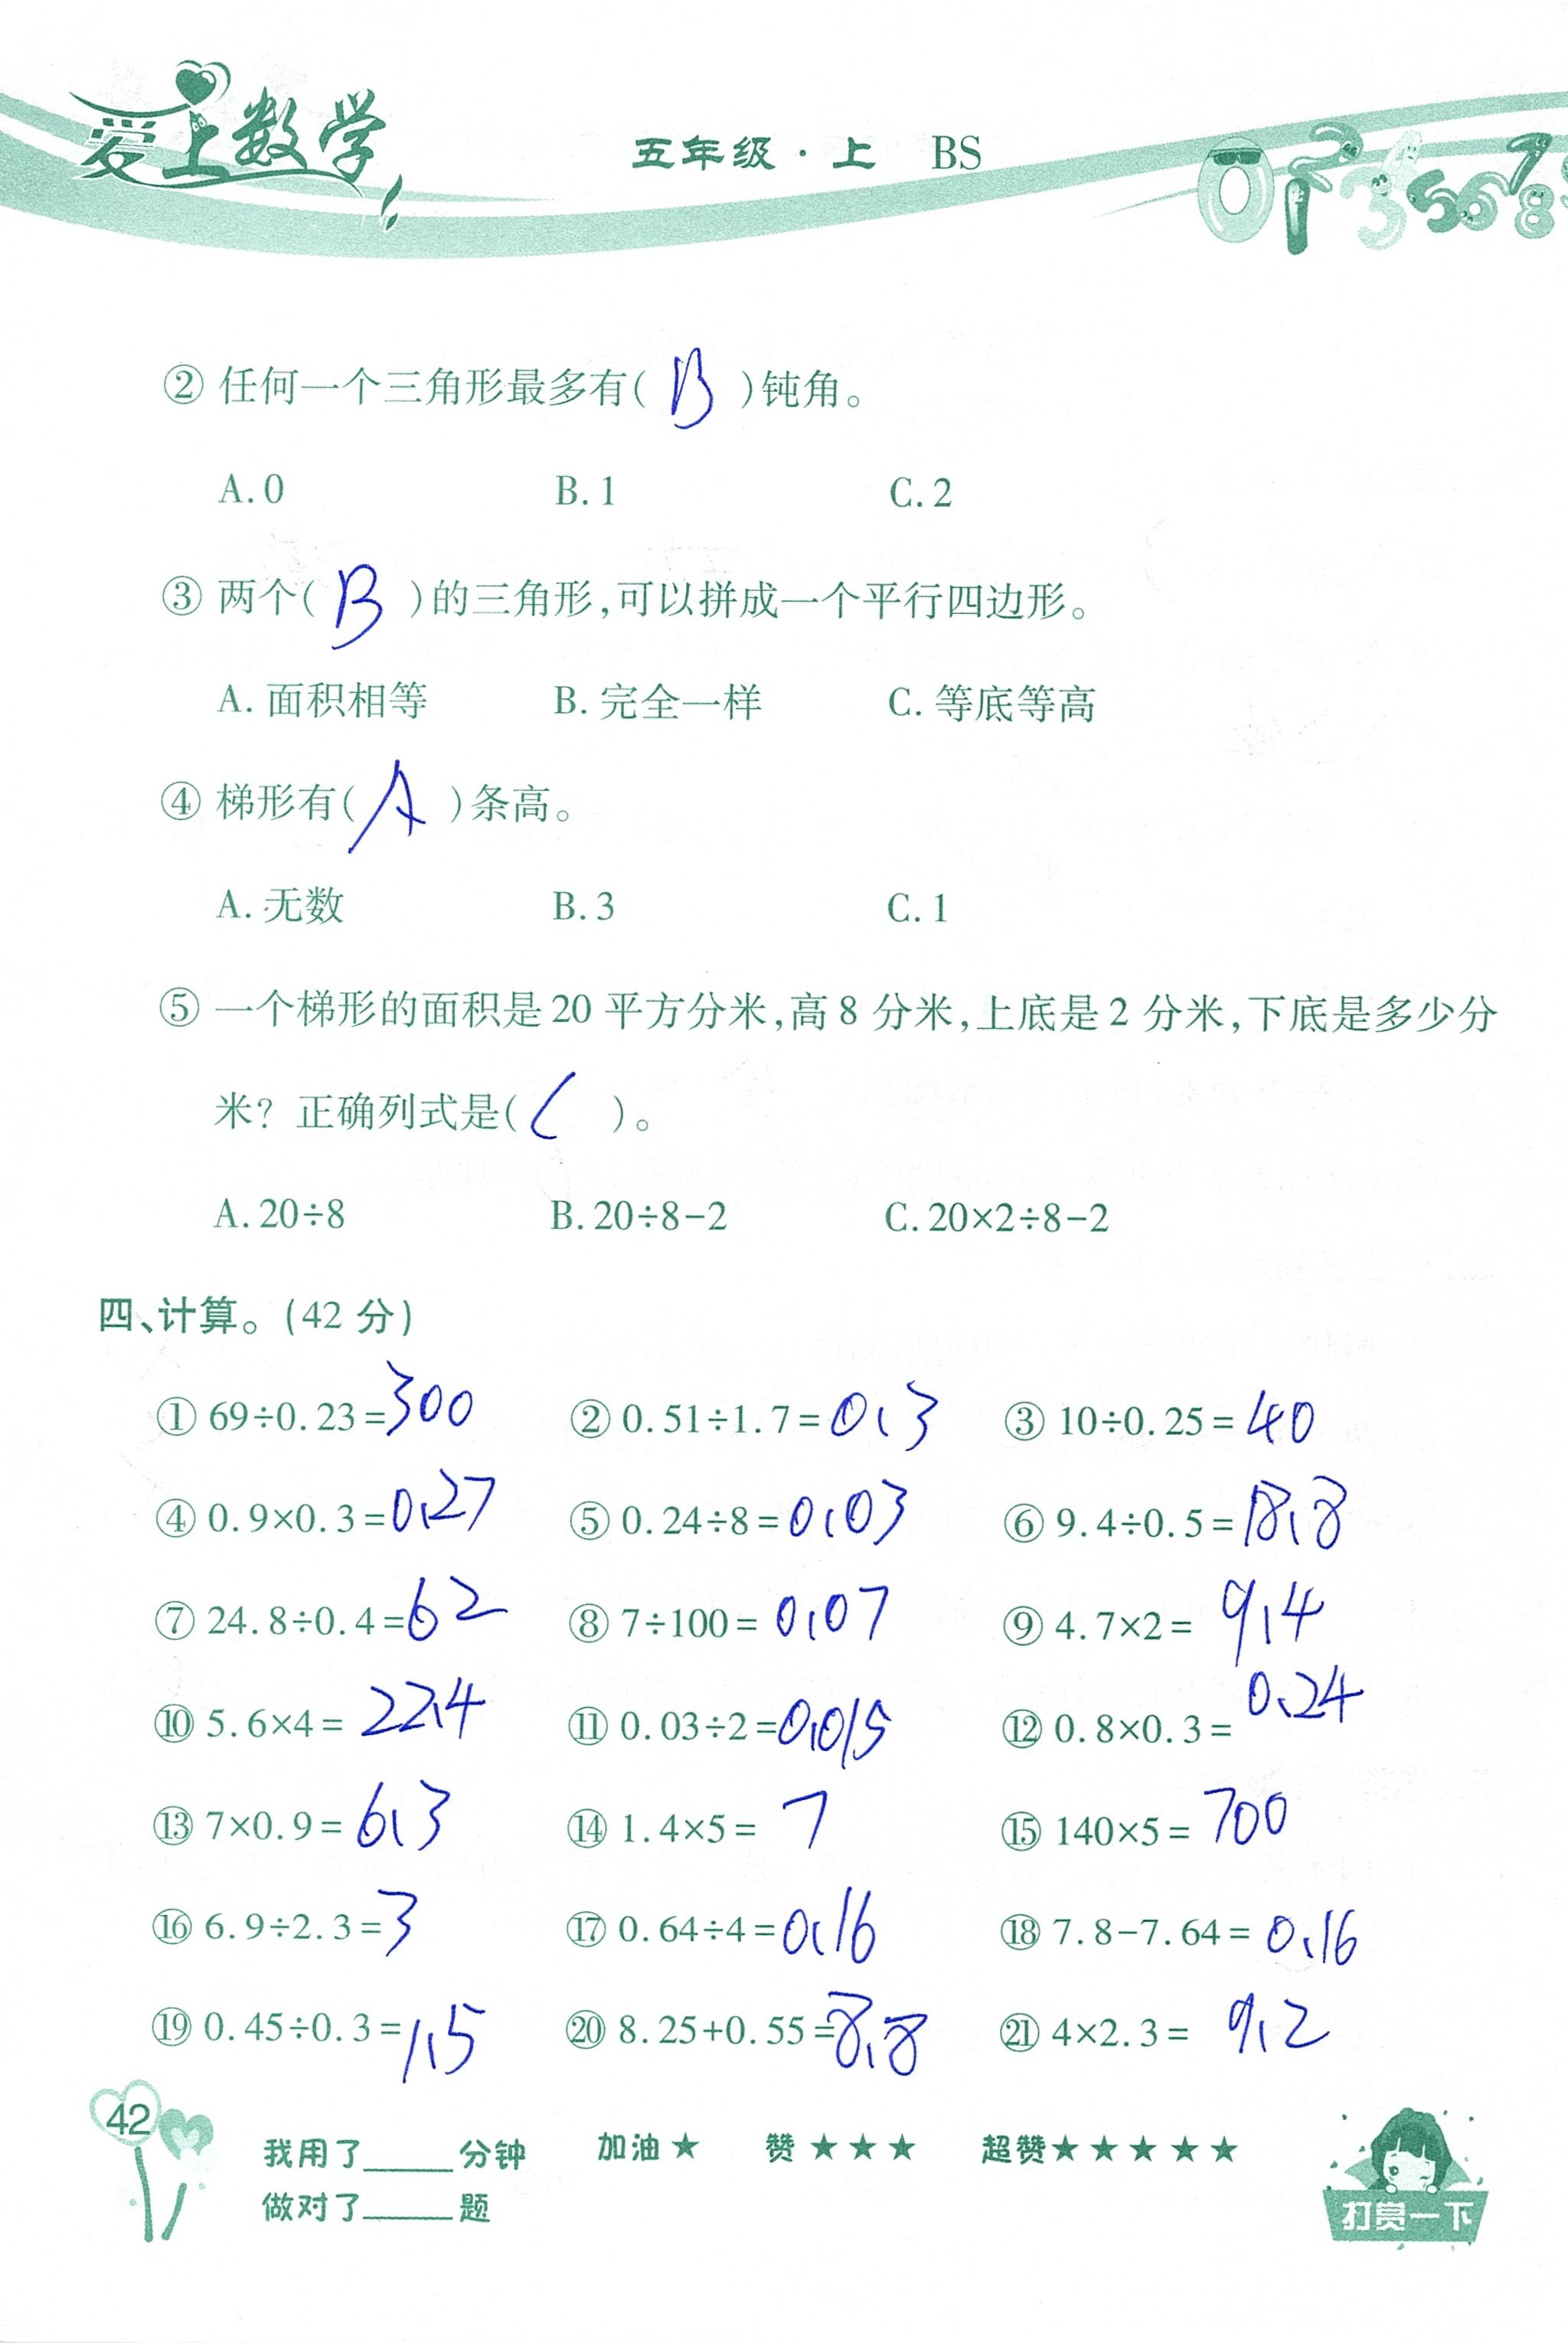 爱上数学
五年级·上 BS
② 任何一个三角形最多有( B )钝角。
A. 0 B. 1 C. 2
③ 两个( B )的三角形,可以拼成一个平行四边形。
A. 面积相等 B. 完全一样 C. 等底等高
④ 梯形有( A )条高。
A. 无数 B. 3 C. 1
⑤ 一个梯形的面积是 20 平方分米,高 8 分米,上底是 2 分米,下底是多少分
米? 正确列式是( C )。
A. 20÷8 B. 20÷8-2 C. 20×2÷8-2
四、计算。(42 分)
① 69÷0.23=300 ② 0.51÷1.7=0.3 ③ 10÷0.25=40
④ 0.9×0.3=0.27 ⑤ 0.24÷8=0.03 ⑥ 9.4÷0.5=18.8
⑦ 24.8÷0.4=62 ⑧ 7÷100=0.07 ⑨ 4.7×2=9.4
⑩ 5.6×4=22.4 ⑪ 0.03÷2=0.015 ⑫ 0.8×0.3=0.24
⑬ 7×0.9=6.3 ⑭ 1.4×5=7 ⑮ 140×5=700
⑯ 6.9÷2.3=3 ⑰ 0.64÷4=0.16 ⑱ 7.8-7.64=0.16
⑲ 0.45÷0.3=1.5 ⑳ 8.25+0.55=8.8 ㉑ 4×2.3=9.2
42
我用了____分钟 加油★ 赞★★★ 超赞★★★★★
做对了____题
打赏一下